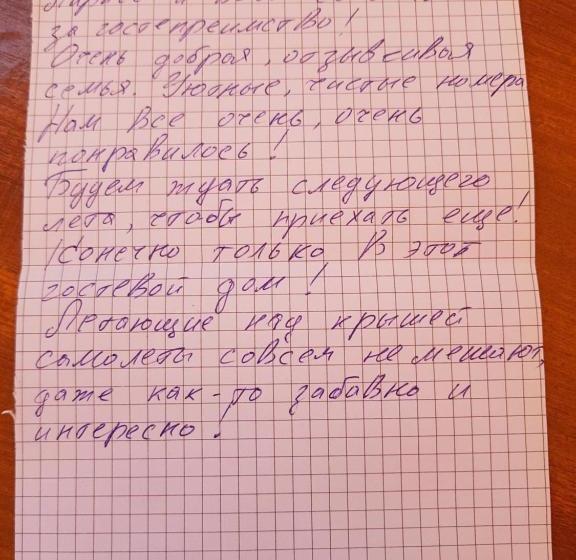 за гостепреимство!
Очень добрая, отзывчивая
семья. Уютные, чистые номера
Нам все очень, очень
понравилось!
Будем ждать следующего
лета, чтобы приехать еще!
Конечно только в этот
гостевой дом!
Летающие над крышей
самолеты совсем не мешают,
даже как-то забавно и
интересно!